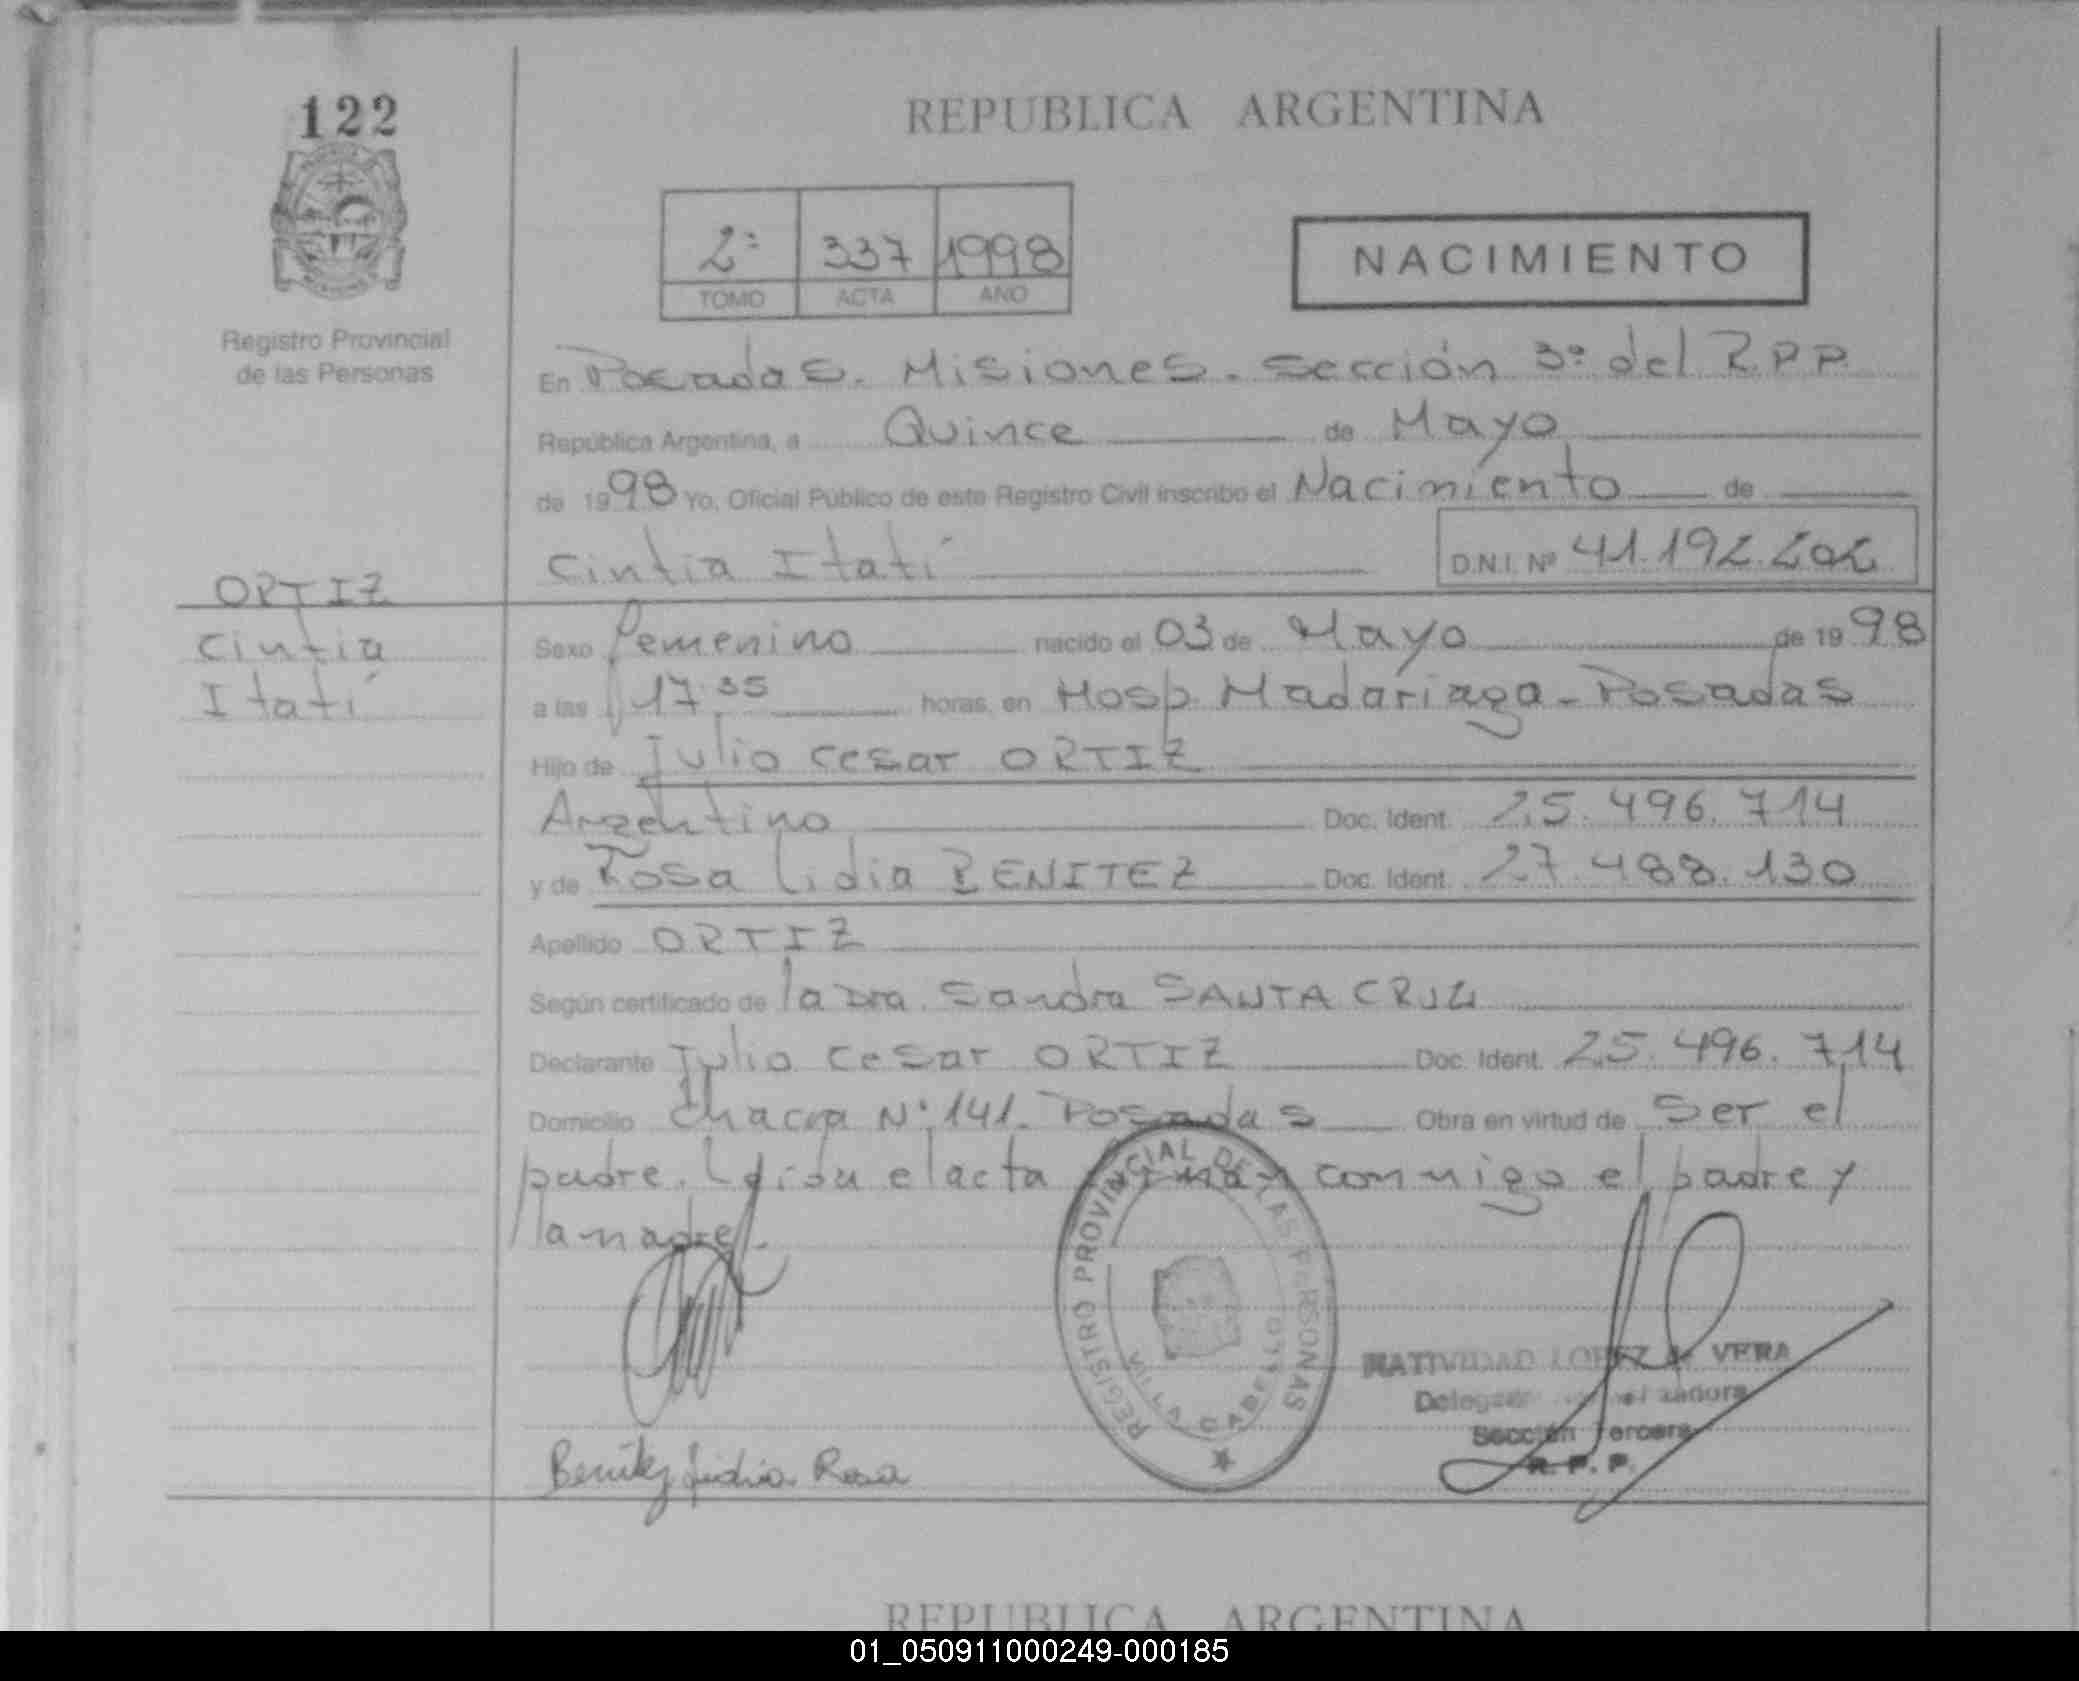 122
REPUBLICA ARGENTINA
2º 337 1998
TOMO ACTA AÑO
NACIMIENTO
Registro Provincial
de las Personas
En Posadas. Misiones. Sección 3º del R.P.P.
República Argentina, a Quince de Mayo
de 1998 Yo, Oficial Público de este Registro Civil inscribo el Nacimiento de
Cintia Itatí D.N.I. Nº 41.192.202
ORTIZ
Cintia
Itatí
Sexo Femenino nacido el 03 de Mayo de 1998
a las 17.35 horas, en Hosp. Madariaga - Posadas
Hijo de Julio Cesar ORTIZ
Argentino Doc. Ident. 25.496.714
y de Rosa Lidia BENITEZ Doc. Ident. 27.488.130
Apellido ORTIZ
Según certificado de la Dra. Sandra SANTA CRUZ
Declarante Julio Cesar ORTIZ Doc. Ident. 25.496.714
Domicilio Chacra Nº 141. Posadas Obra en virtud de Ser el
padre. Leida el acta firman conmigo el padre y
la madre.
REGISTRO PROVINCIAL DE LAS PERSONAS
VILLA CABELLO
NATIVIDAD LOPEZ de VERA
Sección Tercera
R. P. P.
Benitez Lidia Rosa
REPUBLICA ARGENTINA
01_050911000249-000185